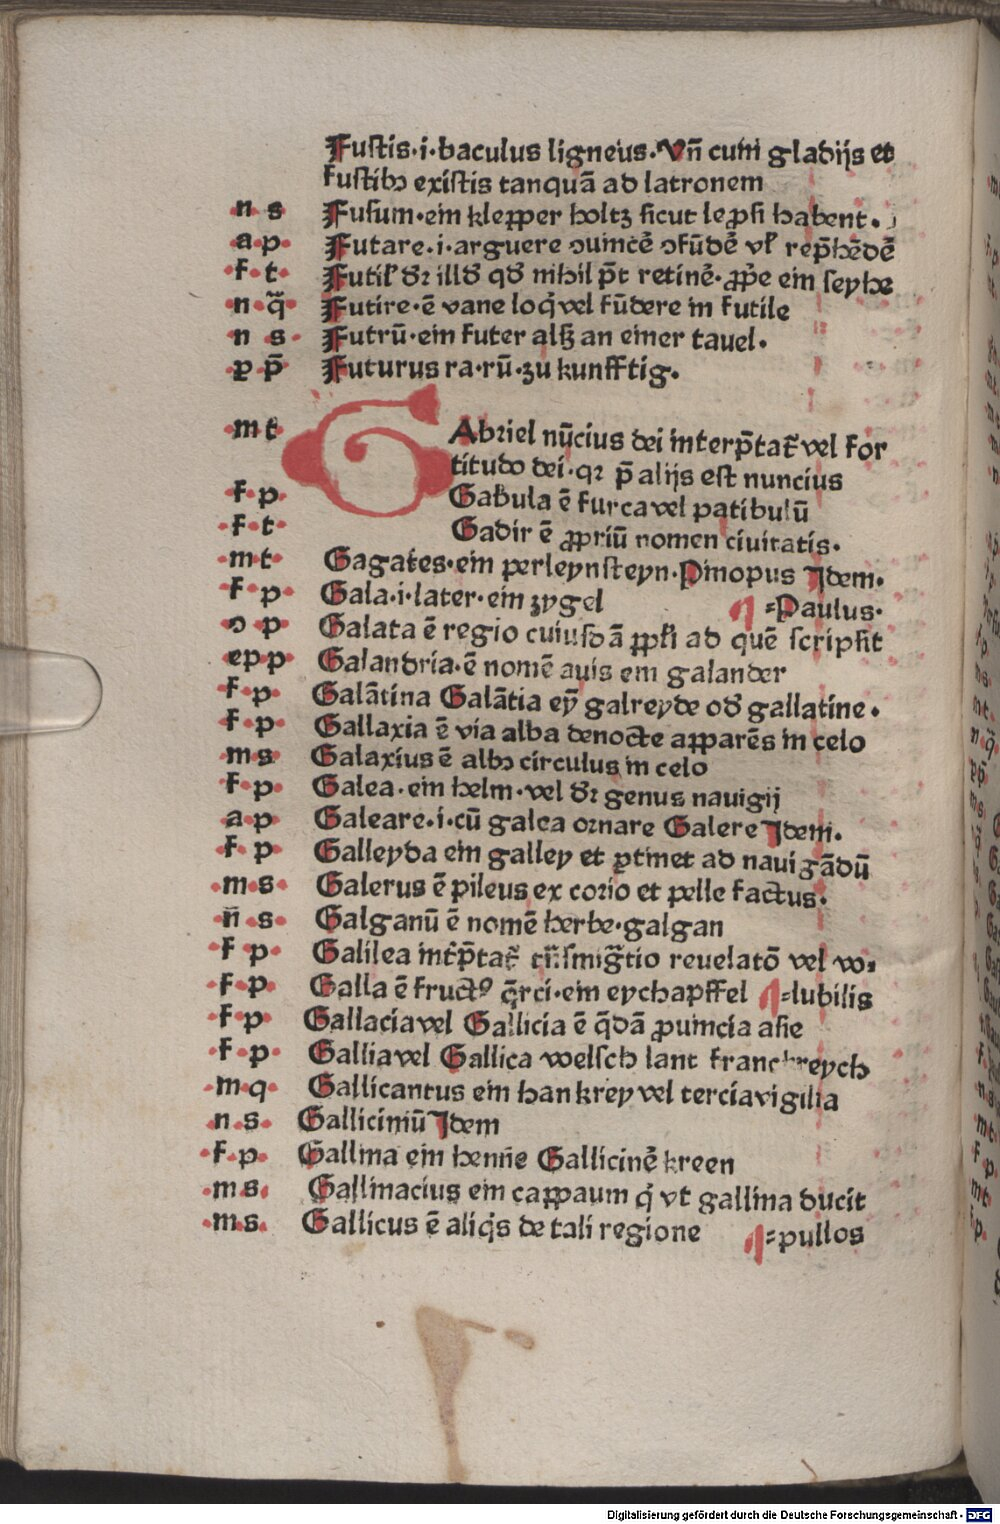 Fustis·i·baculus ligneus·Vn̄ cum gladijs et
fustibꝫ existis tanquā ad latronem
n s Fusum·ein klepper holtz sicut leprosi habent·
a p Futare·i·arguere ↄuincē ↄfūdē vl̕ rep̄hēdē
f·t· Futil̕ dr̄ illd̕ qd̕ nihil p̄t retinē·ꝓpe ein seyhe
n·q̄· Futire·ē vane loq̇ vel fūdere in futile
n s· Futrū·ein futer alß an einer tauel·
p p̄ Futurus ra·rū·zu kunfftig·
m t GAbriel nūcius dei interp̄tat̄ vel for
titudo dei·qꝛ p̄ alijs est nuncius
f·p· Gabula ē furca vel patibulū
f·t· Gadir ē ꝓpriū nomen ciuitatis·
m t· Gagates·ein perleynsteyn·Pinopus Idem·
f·p· Gala·i·later·ein zygel ¶=Paulus·
ↄ p Galata ē regio cuiusdā ad quē scripsit
ep p Galandria·ē nomē auis ein galander
f·p· Galātina Galātia eȳ galreyde od̕ gallatine·
f·p· Gallaxia ē via alba denocte apparēs in celo
m s· Galaxius ē albꝫ circulus in celo
f·p· Galea·ein helm·vel dr̄ genus nauigij
a p· Galeare·i·cū galea ornare Galere Idem·
f p Galleyda ein galley et ꝑtinet ad nauigādū
m·s· Galerus ē pileus ex corio et pelle factus·
n̄ s Galganū ē nomē herbe·galgan
f p· Galilea int̕p̄tat̄ trāsmig̅tio reuelatō vel vo·
f·p· Galla ē fructꝰ q̄rci·ein eychapffel ¶=lubilis
f p· Gallacia vel Gallicia ē q̄dā ꝓuincia asie
f·p· Gallia vel Gallica welsch lant franckreych
m q· Gallicantus ein hankrey vel tercia vigilia
n·s· Galliciniū Idem
f·p· Gallina ein henne Gallicinē kreen
m s· Gallinacius ein cappaun q̇ vt gallina ducit
m s· Gallicus ē aliq̇s de tali regione ¶=pullos
Digitalisierung gefördert durch die Deutsche Forschungsgemeinschaft - DFG